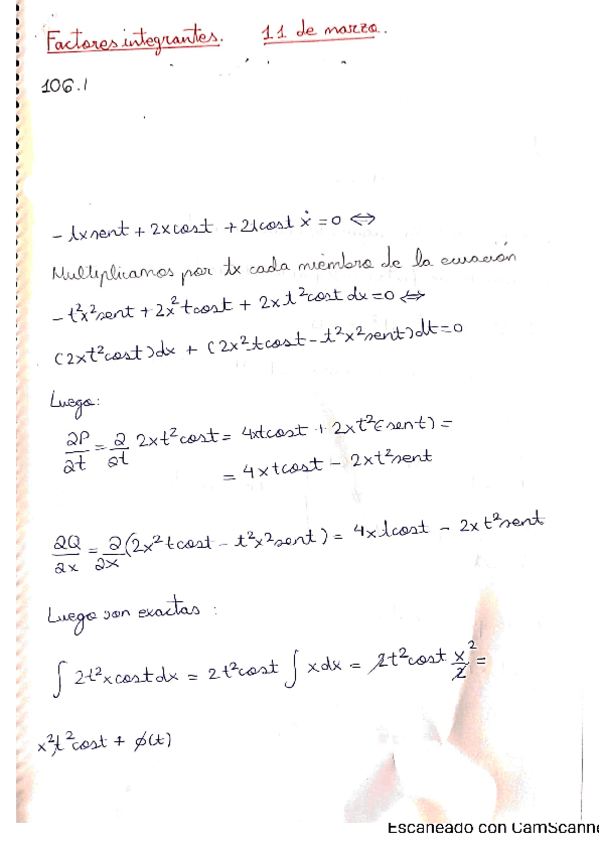 Factores integrantes. 11 de marzo.
106.1
- tx sent + 2x cost + 2t cost ẋ = 0 ⇔
Multiplicamos por tx cada miembro de la ecuación
- t²x² sent + 2x² t cost + 2x t² cost dx = 0 ⇔
(2xt² cost) dx + (2x² t cost - t²x² sent) dt = 0
Luego:
∂P/∂t = ∂/∂t 2xt² cost = 4xt cost + 2xt² (-sent) =
= 4xt cost - 2xt² sent
∂Q/∂x = ∂/∂x (2x² t cost - t²x² sent) = 4xt cost - 2xt² sent
Luego son exactas :
∫ 2t²x cost dx = 2t² cost ∫ x dx = 2t² cost x²/2 =
x²t² cost + φ(t)
Escaneado con CamScanne